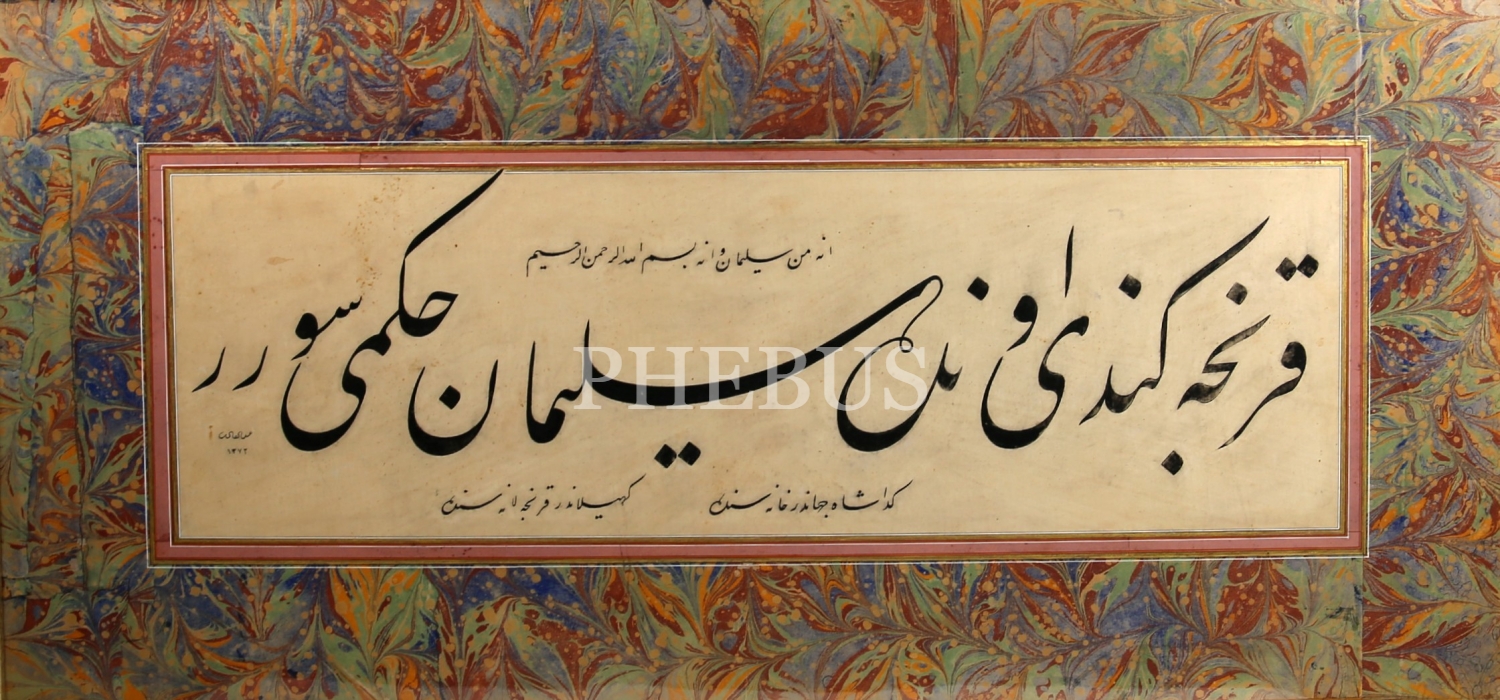 انه من سلیمان و انه بسم الله الرحمن الرحیم
قرنجه کندی اوندن سلیمان حکمی سورر
کدا شاه جهاندر خانه سنده
سلیماندر قرنجه لانه سنده
۱۳۷۲
PHEBUS